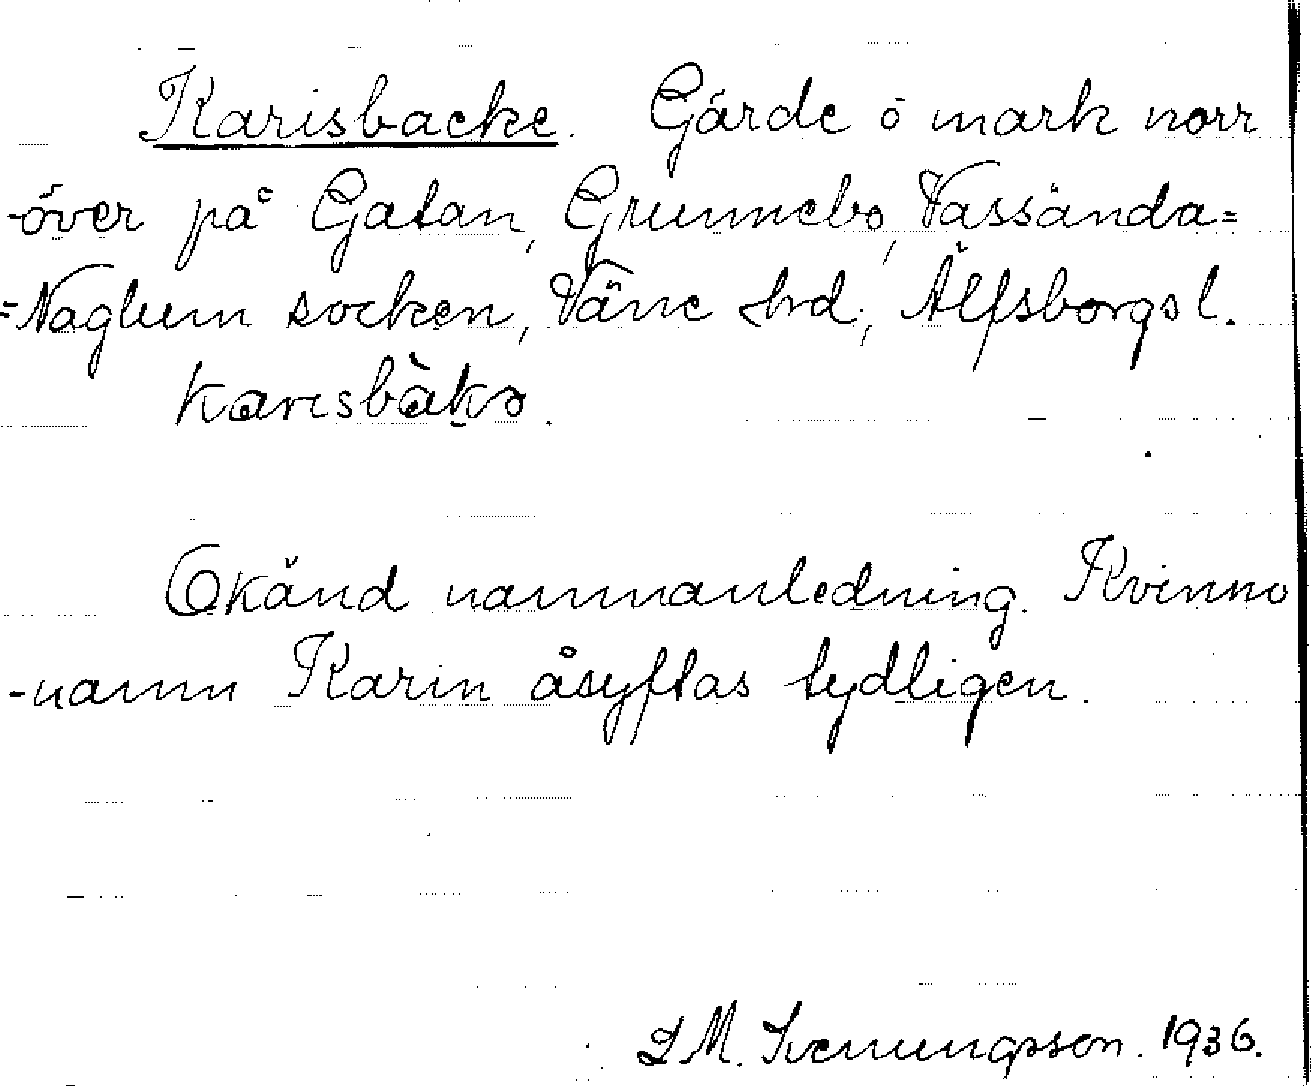 Karisbacke. Gärde o mark norr
-över på Gatan, Grunnebo, Vassända=
=Naglum socken, Väne hrd, Älfsborgs l.
karesbàkɑ.
Okänd namnanledning. Kvinno
-namn Karin åsyftas tydligen.
D M. Svenungsson. 1936.